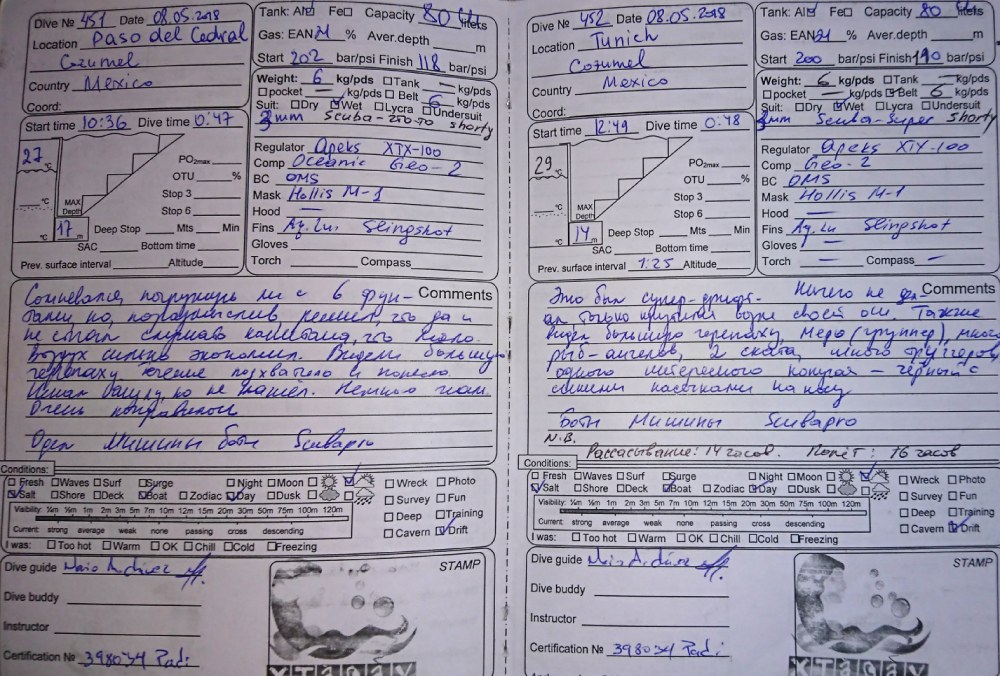 Dive № 451 Date 08.05.2018
Location Paso del Cedral
Cozumel
Country Mexico
Coord:
Tank: Al Fe Capacity 80 liters
Gas: EAN 21 % Aver.depth m
Start 202 bar/psi Finish 118 bar/psi
Weight: 6 kg/pds Tank — kg/pds
pocket — kg/pds Belt 6 kg/pds
Suit: Dry Wet Lycra Undersuit
3 mm Scuba- shorty
Start time 10:36 Dive time 0:47
27
PO2max
OTU %
Stop 3
Stop 6
°C
MAX Depth
°C 17 m
Deep Stop Mts Min
SAC Bottom time
Prev. surface interval — Altitude
Regulator Apeks XTX-100
Comp Oceanic Geo-2
BC OMS
Mask Hollis M-1
Hood —
Fins Aq. Lu. Slingshot
Gloves
Torch Compass
Comments
Сомневался погружусь ли с 6 фун-
тами, но, решил, что да и
не стал слушать капитана, что мало.
Воздух сильно экономил. Видели большую
черепаху течение подхватило и понесло.
Искал но не нашел. Немного
Очень понравилось
Одел Мишины боты Scubapro
Conditions:
Fresh Waves Surf Surge Night Moon
Salt Shore Deck Boat Zodiac Day Dusk
Visibility: ¼m ½m 1m 2m 5m 10m 15m 20m 30m 50m 75m 100m 120m
Current: strong average weak none passing cross descending
I was: Too hot Warm OK Chill Cold Freezing
Wreck Photo
Survey Fun
Deep Training
Cavern Drift
Dive guide
Dive buddy
Instructor
Certification № 398034 Padi
STAMP
XTABAY
Dive № 452 Date 08.05.2018
Location Tunich
Cozumel
Country Mexico
Coord:
Tank: Al Fe Capacity 80 liters
Gas: EAN 21 % Aver.depth m
Start 200 bar/psi Finish 190 bar/psi
Weight: 6 kg/pds Tank — kg/pds
pocket — kg/pds Belt 6 kg/pds
Suit: Dry Wet Lycra Undersuit
3 mm Scuba-Super shorty
Start time 12:49 Dive time 0:48
29
PO2max
OTU %
Stop 3
Stop 6
°C
MAX Depth
°C 14 m
Deep Stop Mts Min
SAC Bottom time
Prev. surface interval 1:25 Altitude
Regulator Apeks XTX-100
Comp Geo-2
BC OMS
Mask Hollis M-1
Hood —
Fins Aq. Lu Slingshot
Gloves —
Torch — Compass —
Comments
Это был супер-дрифт. Ничего не дел-
ал только крутился вокруг своей оси. Также
видел большую черепаху, меро (группер), много
рыб-ангелов, 2 ската, много
одного интересного — чёрный с
синими на носу
Боты Мишины Scubapro
N.B.
Рассасывание: 14 часов. Полёт: 16 часов
Conditions:
Fresh Waves Surf Surge Night Moon
Salt Shore Deck Boat Zodiac Day Dusk
Visibility: ¼m ½m 1m 2m 5m 10m 15m 20m 30m 50m 75m 100m 120m
Current: strong average weak none passing cross descending
I was: Too hot Warm OK Chill Cold Freezing
Wreck Photo
Survey Fun
Deep Training
Cavern Drift
Dive guide
Dive buddy
Instructor
Certification № 398034 Padi
STAMP
XTABAY